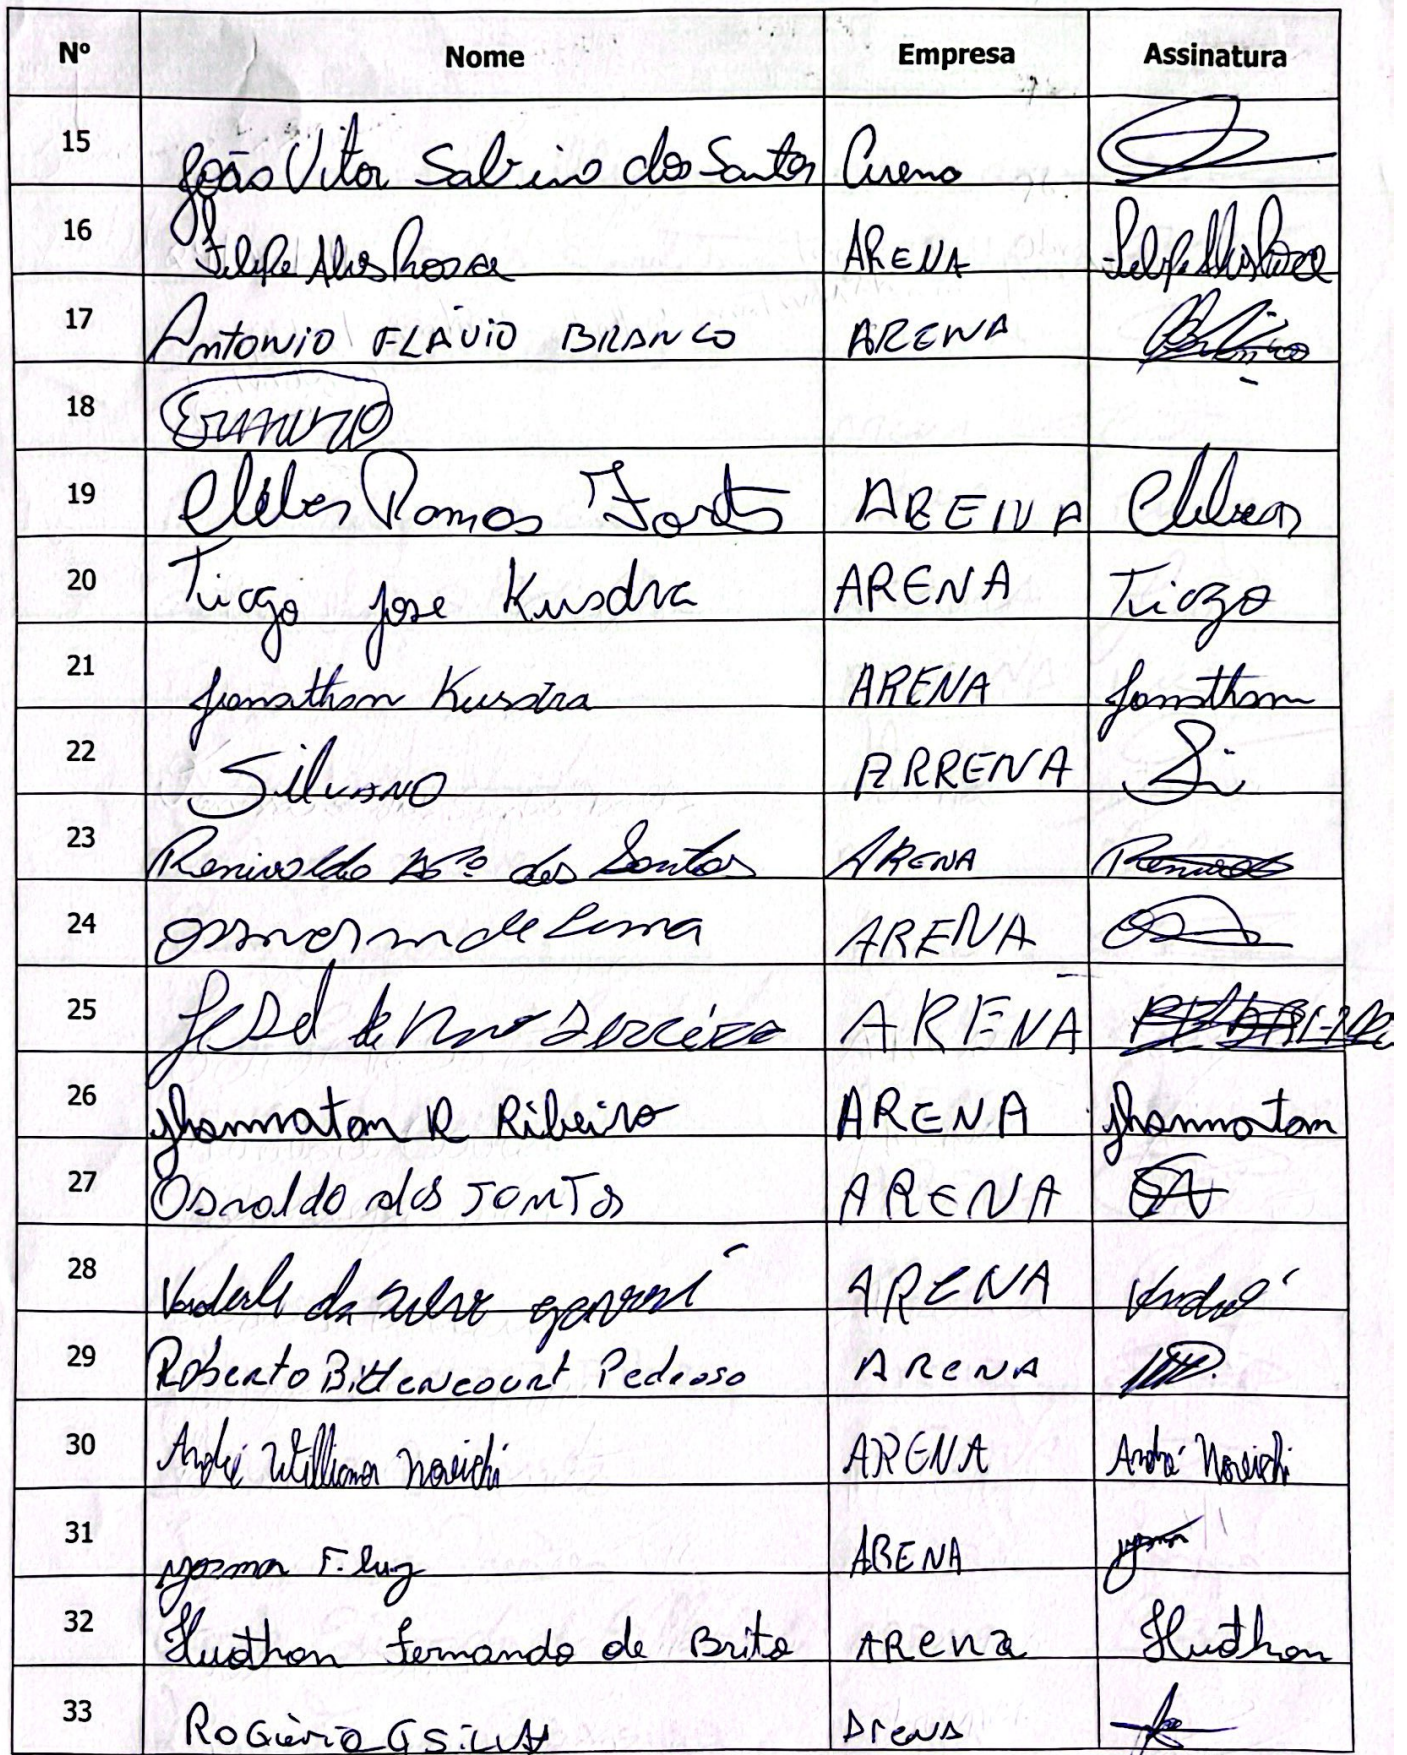 Nº Nome Empresa Assinatura
15 João Vitor Sabino dos Santos Arena
16 Felipe Alves Rosa ARENA Felipe Alves Rosa
17 Antonio FLÁVIO BRANCO ARENA
18
19 Cleber Ramos ARENA Cleber
20 Tiago jose Kusdra ARENA Tiago
21 Jonathan Kusdra ARENA Jonathan
22 Silvano ARRENA
23 Renivaldo dos Santos ARENA
24 de Lima ARENA
25 ARENA
26 Jhonnatan R Ribeiro ARENA Jhonnatan
27 Osvaldo dos SANTOS ARENA
28 da Silva ARENA
29 Roberto Bittencourt Pedroso ARENA
30 André Willian Noveichi ARENA André Noveichi
31 F. luz ARENA
32 Hudhon Fernando de Brito ARena Hudhon
33 RoGério G SiLVA Arena